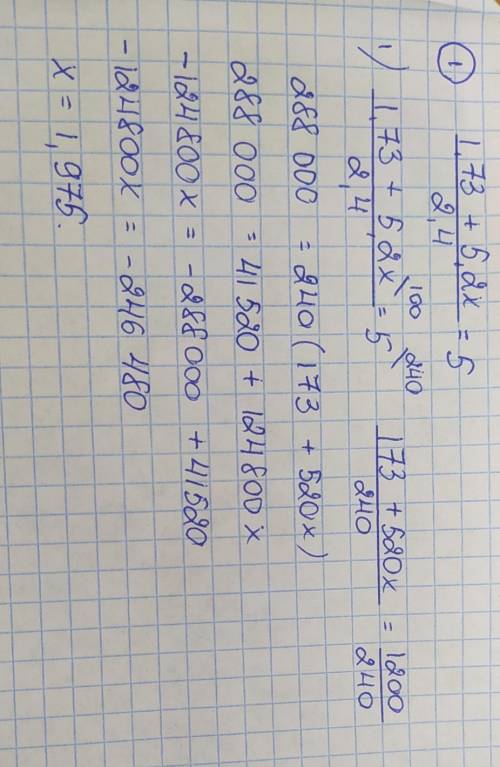 ① (1,73 + 5,2x) / 2,4 = 5
1) (1,73 + 5,2x) / 2,4 \100 = 5 \240 (173 + 520x) / 240 = 1200 / 240
288 000 = 240 (173 + 520x)
288 000 = 41520 + 124800x
-124800x = -288000 + 41520
-124800x = -246 480
x = 1,975.